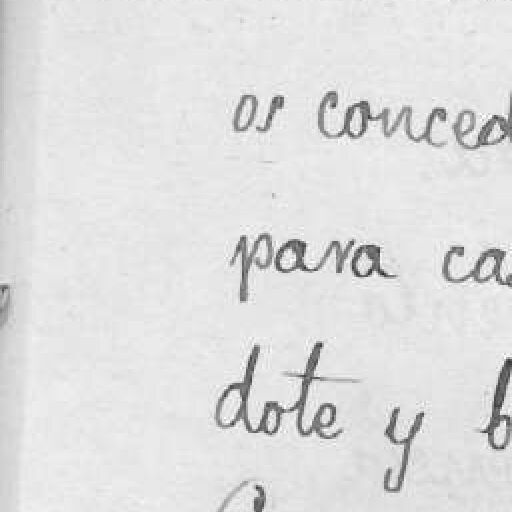 os conced
para cas
dote y b